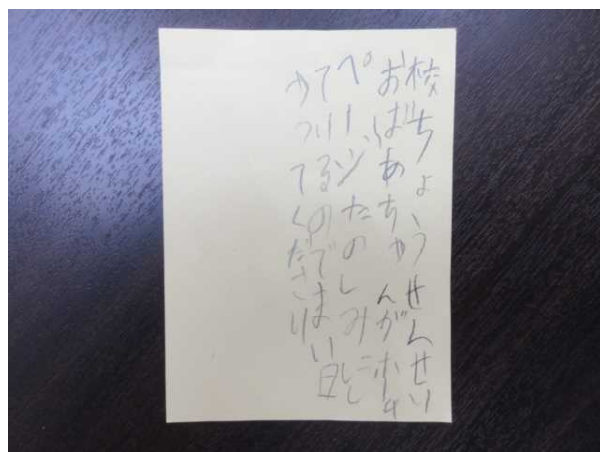 校ちょうせんせい
おばあちゃんがホーム
ページたのしみにし
ているのでまい日
やってください